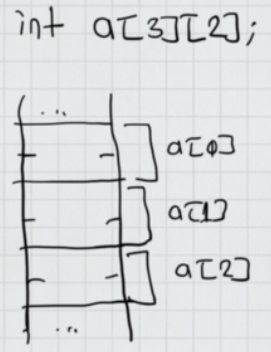 int a[3][2];
...
a[0]
a[1]
a[2]
...